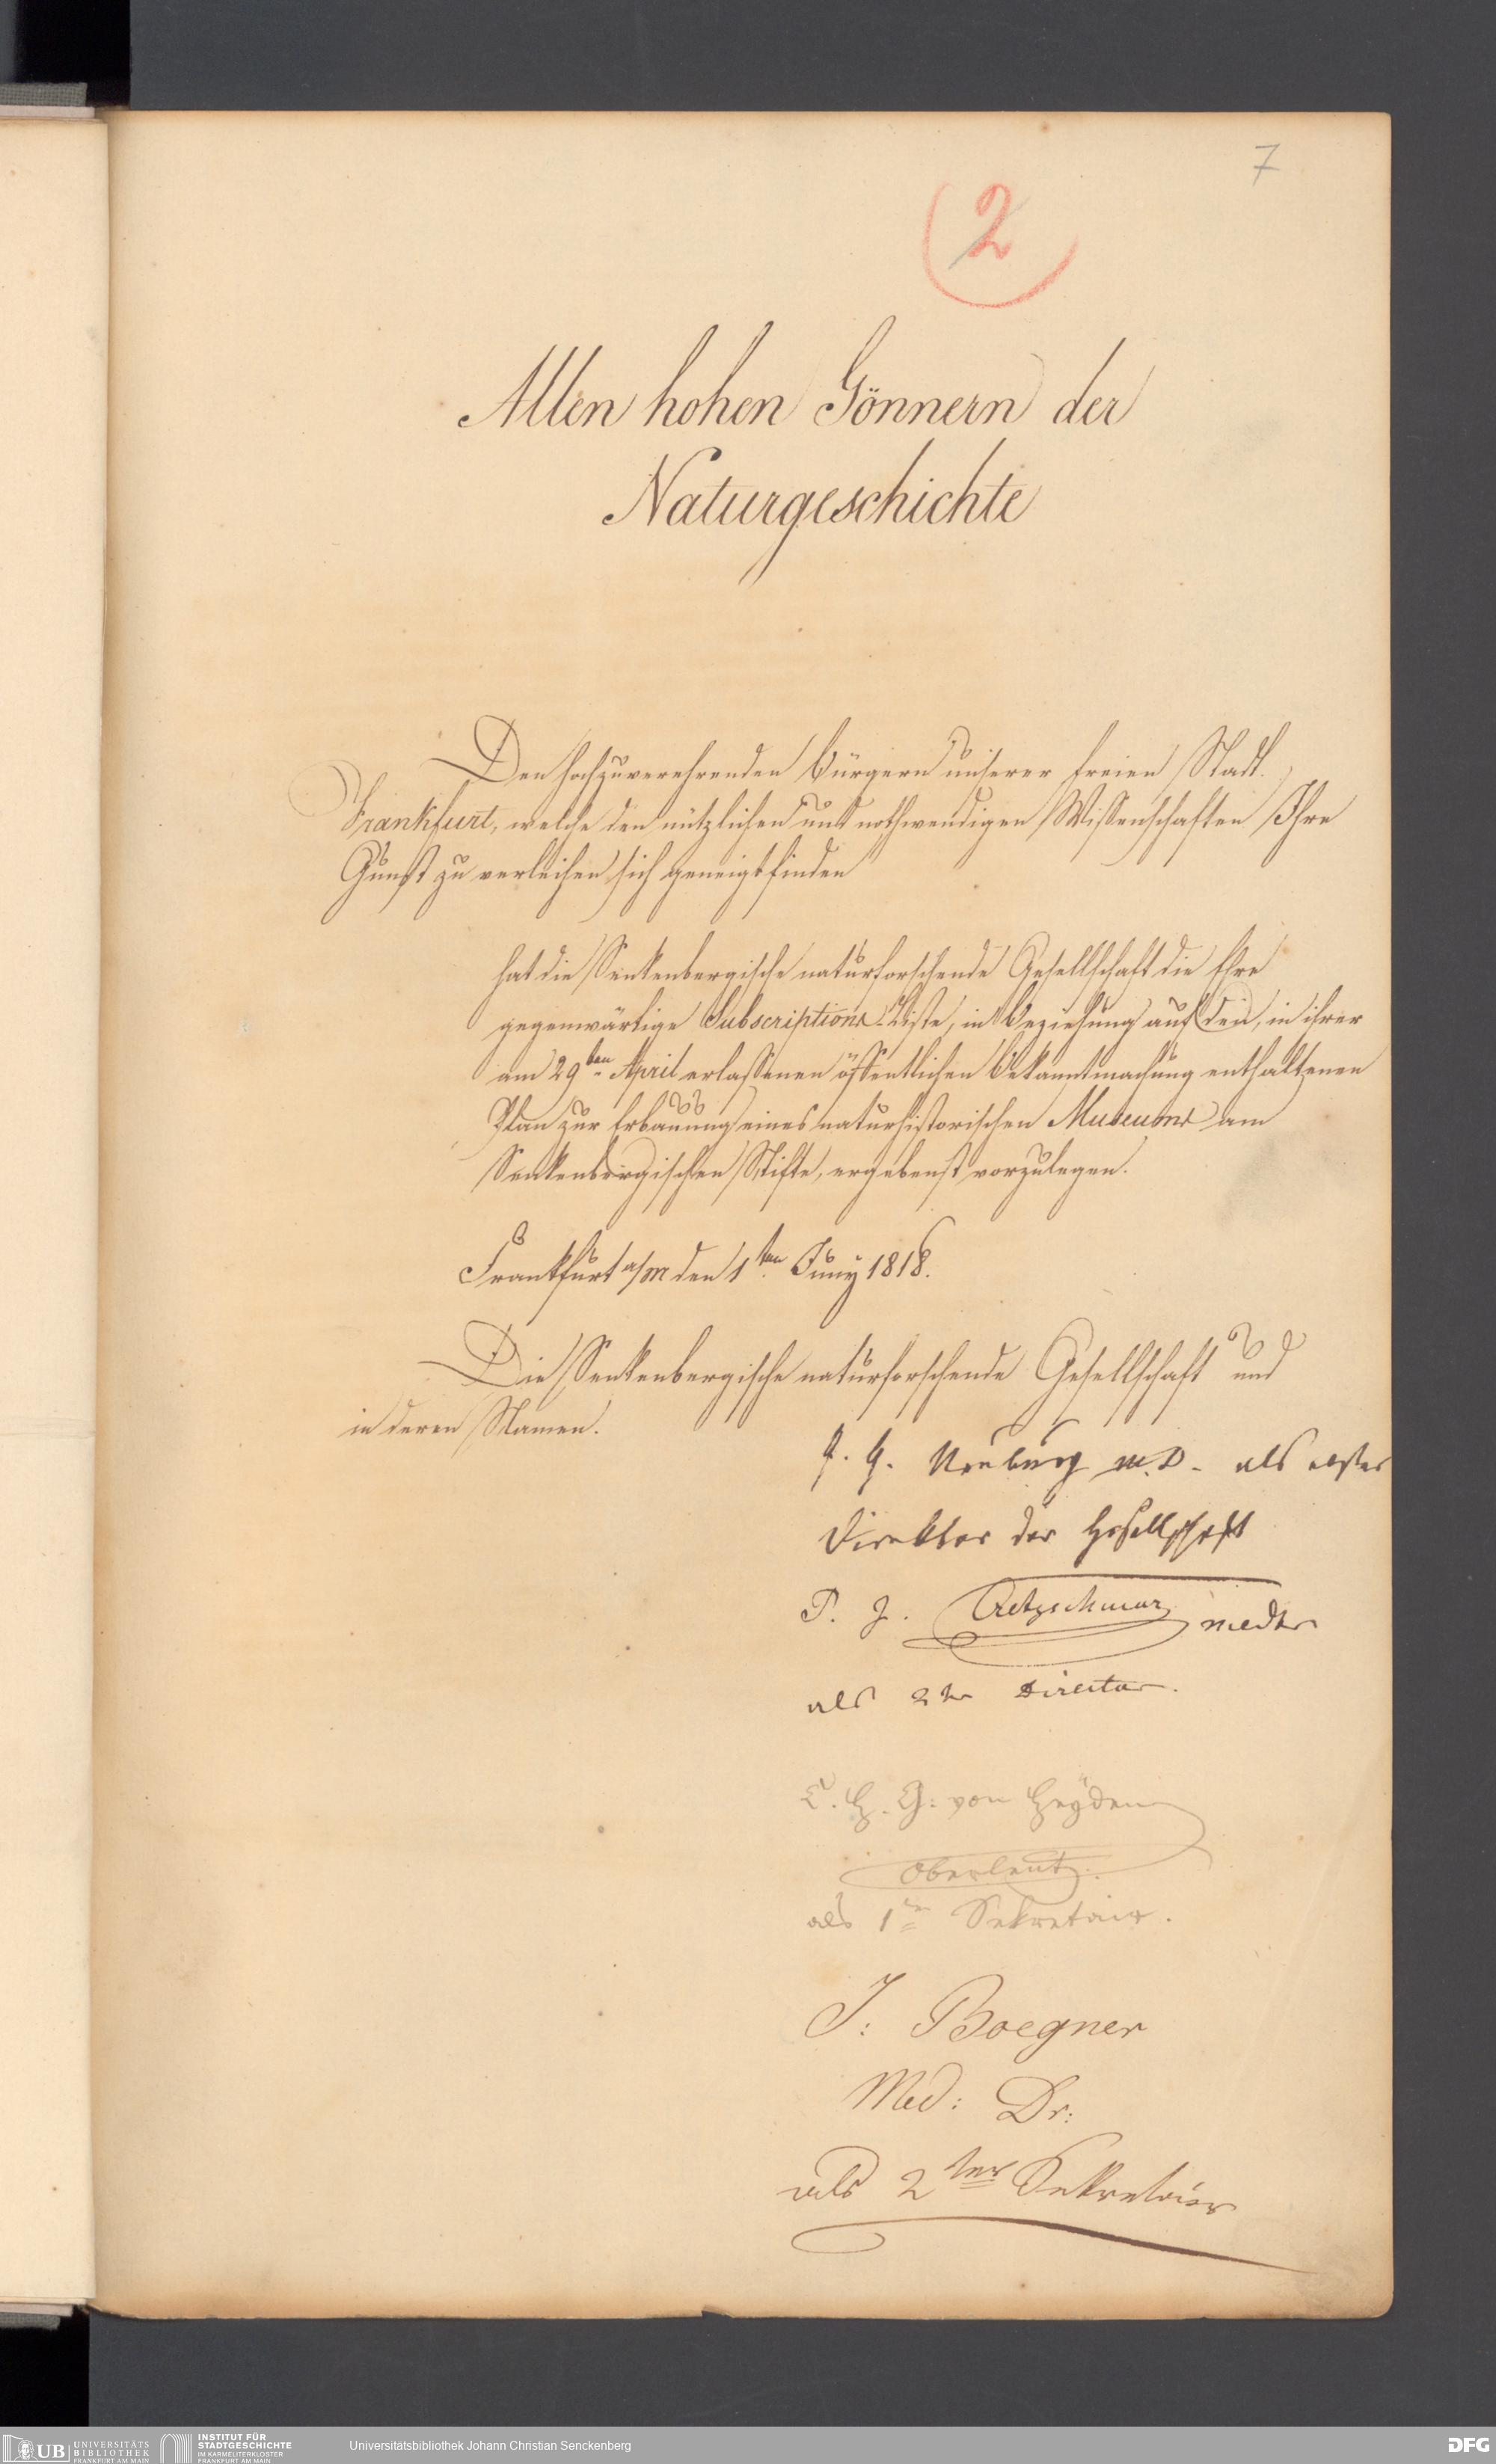 7
2
Allen hohen Gönnern der
Naturgeschichte
Den hochzuverehrenden Bürgern unserer freien Stadt
Frankfurt, welche den nützlichen und nothwendigen Wissenschaften Ihre
Gunst zu verleihen sich geneigt finden
hat die Senkenbergische naturforschende Gesellschaft die Ehre
gegenwärtige Subscriptions-Liste, in Beziehung auf den, in ihrer
am 29ten April erlassenen öffentlichen Bekanntmachung enthaltenen
Plan zur Erbauung eines naturhistorischen Museums am
Senkenbergischen Stifte, ergebenst vorzulegen.
Frankfurt a/m den 1ten Juny 1818.
Die Senkenbergische naturforschende Gesellschaft und
in deren Namen.
J. G. Neuburg M.D. als erster
Direktor der Gesellschaft
P. J. Cretzschmar med Dr
als 2tr Director.
C. H. G: von Heyden
Oberleut.
als 1tr Sekretair.
J: Boegner
Med: Dr:
als 2ter Sekretair
UB UNIVERSITÄTS
BIBLIOTHEK
FRANKFURT AM MAIN
INSTITUT FÜR
STADTGESCHICHTE
IM KARMELITERKLOSTER
FRANKFURT AM MAIN
Universitätsbibliothek Johann Christian Senckenberg
DFG